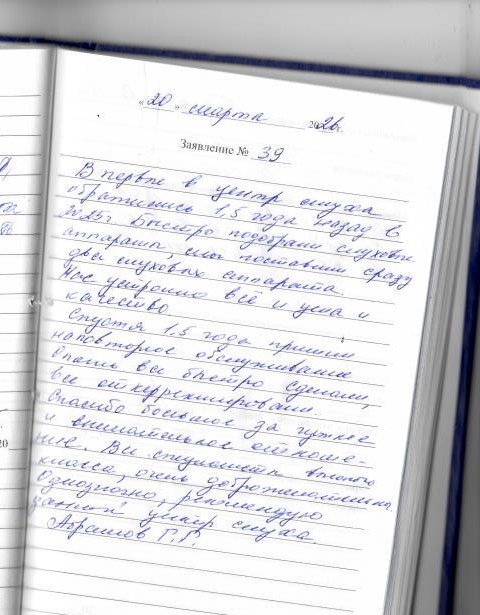 «20» марта 2026г.
Заявление № 39
Впервые в центр слуха
обратились 1,5 года назад в
2025г. Быстро подобрали слуховые
аппараты, поставили сразу
два слуховых аппарата.
Нас устроило всё и цена и
качество.
Спустя 1,5 года пришли
на повторное обслуживание
Опять все быстро сделали,
все откорректировали.
Спасибо большое за чуткое
и внимательное отноше-
ние. Все специалисты высокого
класса, очень доброжелательны.
Однозначно, рекомендую
данный центр слуха.
Абрамов Г.Г.
20